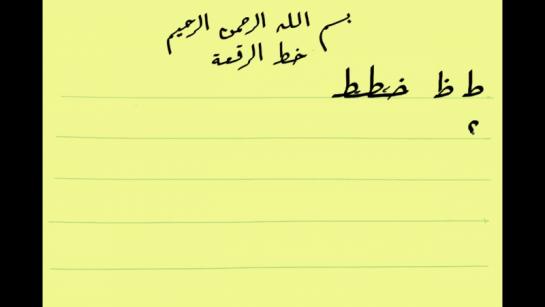 بسم الله الرحمن الرحيم
خط الرقعة
ط ظ خططط